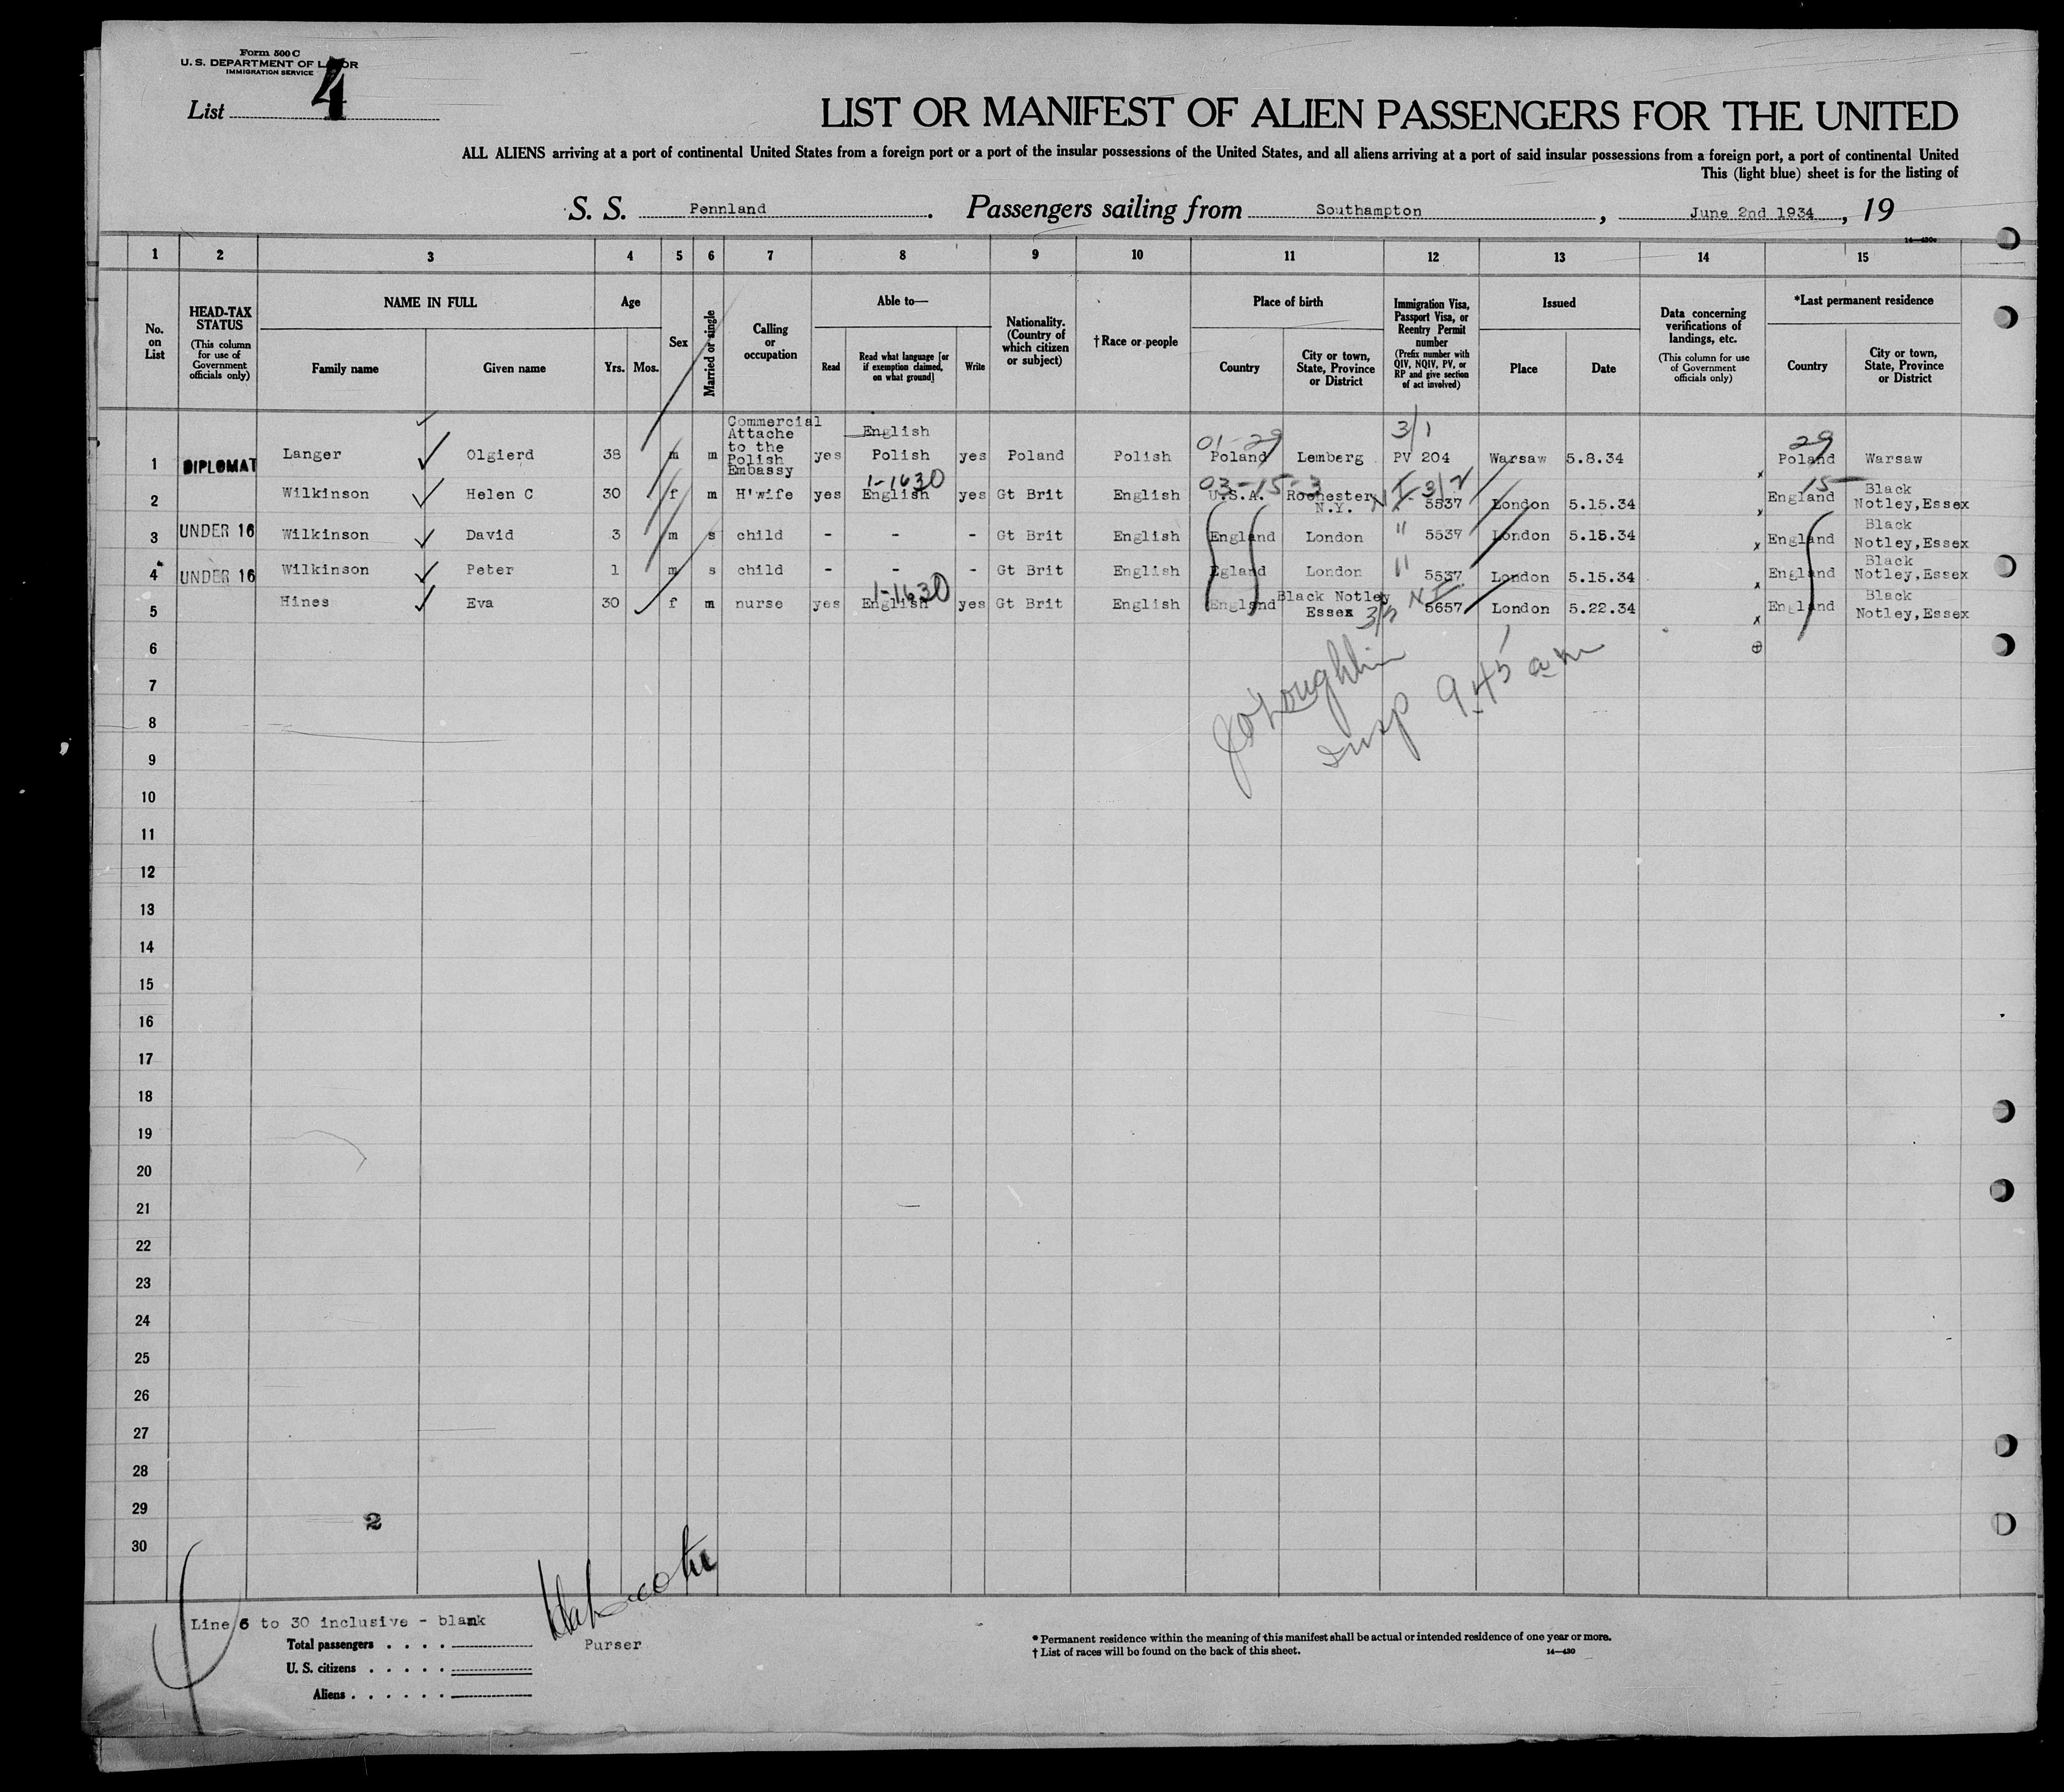 Form 500 C
U. S. DEPARTMENT OF LABOR
IMMIGRATION SERVICE
List 4
LIST OR MANIFEST OF ALIEN PASSENGERS FOR THE UNITED
ALL ALIENS arriving at a port of continental United States from a foreign port or a port of the insular possessions of the United States, and all aliens arriving at a port of said insular possessions from a foreign port, a port of continental United
This (light blue) sheet is for the listing of
S. S. Pennland. Passengers sailing from Southampton, June 2nd 1934, 19
14—430
1 2 3 4 5 6 7 8 9 10 11 12 13 14 15
No. on List
HEAD-TAX STATUS (This column for use of Government officials only)
NAME IN FULL
Family name
Given name
Age
Yrs. Mos.
Sex
Married or single
Calling or occupation
Able to—
Read
Read what language [or if exemption claimed, on what ground]
Write
Nationality. (Country of which citizen or subject)
†Race or people
Place of birth
Country
City or town, State, Province or District
Immigration Visa, Passport Visa, or Reentry Permit number (Prefix number with QIV, NQIV, PV, or RP and give section of act involved)
Issued
Place
Date
Data concerning verifications of landings, etc. (This column for use of Government officials only)
*Last permanent residence
Country
City or town, State, Province or District
1 DIPLOMAT Langer Olgierd 38 m m Commercial Attache to the Polish Embassy yes English Polish yes Poland Polish 01-29 Poland Lemberg 3/1 PV 204 Warsaw 5.8.34 29 Poland Warsaw
2 Wilkinson Helen C 30 f m H'wife yes 1-1630 English yes Gt Brit English 03-15-3 U.S.A. Rochester N.Y. 3/2 5537 London 5.15.34 15 England Black Notley,Essex
3 UNDER 16 Wilkinson David 3 m s child - - - Gt Brit English England London " 5537 London 5.15.34 England Black Notley,Essex
4 UNDER 16 Wilkinson Peter 1 m s child - - - Gt Brit English Egland London " 5537 London 5.15.34 England Black Notley,Essex
5 Hines Eva 30 f m nurse yes 1-1630 English yes Gt Brit English England Black Notley Essex 5657 London 5.22.34 England Black Notley,Essex
6
JO'Loughlin
7
Insp 9.45 am
8
9
10
11
12
13
14
15
16
17
18
19
20
21
22
23
24
25
26
27
28
29
2
30
Line 6 to 30 inclusive - blank
Total passengers . . . .
U. S. citizens . . . . .
Aliens . . . . . .
Purser
* Permanent residence within the meaning of this manifest shall be actual or intended residence of one year or more.
† List of races will be found on the back of this sheet.
14—430